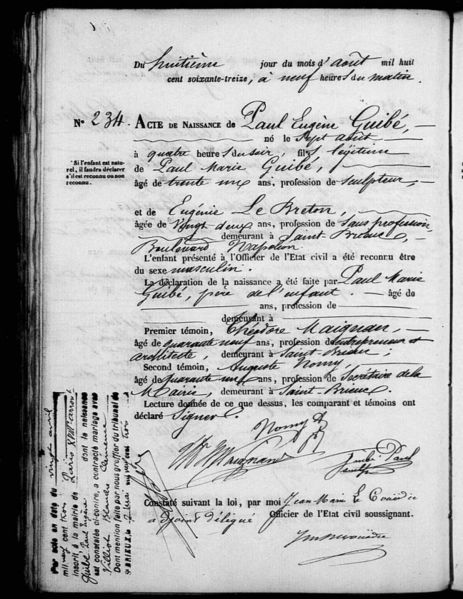 Du huitième jour du mois d'août mil huit
cent soixante-treize, à neuf heures du matin.
N° 234. ACTE DE NAISSANCE de Paul Eugène Guibé,
né le Sept août
à quatre heures du soir, fils légitime
* Si l'enfant est naturel, il faudra déclarer s'il est reconnu ou non reconnu.
de Paul Marie Guibé,
âgé de trente un ans, profession de sculpteur,
et de Eugénie Le Breton,
âgée de Vingt deux ans, profession de sans profession
demeurant à Saint Brieuc
Boulevard Napoléon
L'enfant présenté à l'Officier de l'Etat civil a été reconnu être
du sexe masculin.
La déclaration de la naissance a été faite par Paul Marie
Guibé, père de l'enfant. âgé de
ans, profession de
demeurant à
Premier témoin, Théodore Maignan,
âgé de quarante neuf ans, profession d'entrepreneur et
architecte, demeurant à Saint-Brieuc,
Second témoin, Auguste Nomy,
âgé de quarante neuf ans, profession de Secrétaire de la
Mairie, demeurant à Saint Brieuc
Lecture donnée de ce que dessus, les comparant et témoins ont
déclaré Signer.
Nomy
Maignan
Guibé Paul
Constaté suivant la loi, par moi Jean Marie Le
adjoint délégué Officier de l'Etat civil soussignant.
Par acte en date du vingt avril
mil neuf cent trois
inscrit à la mairie de Paris
Guibé Paul Eugène dont la naissance
est constatée ci-contre, a contracté mariage avec
Blanche Clémence
Dont mention faite par nous greffier du tribunal de
St-BRIEUC, le mil neuf cent trois